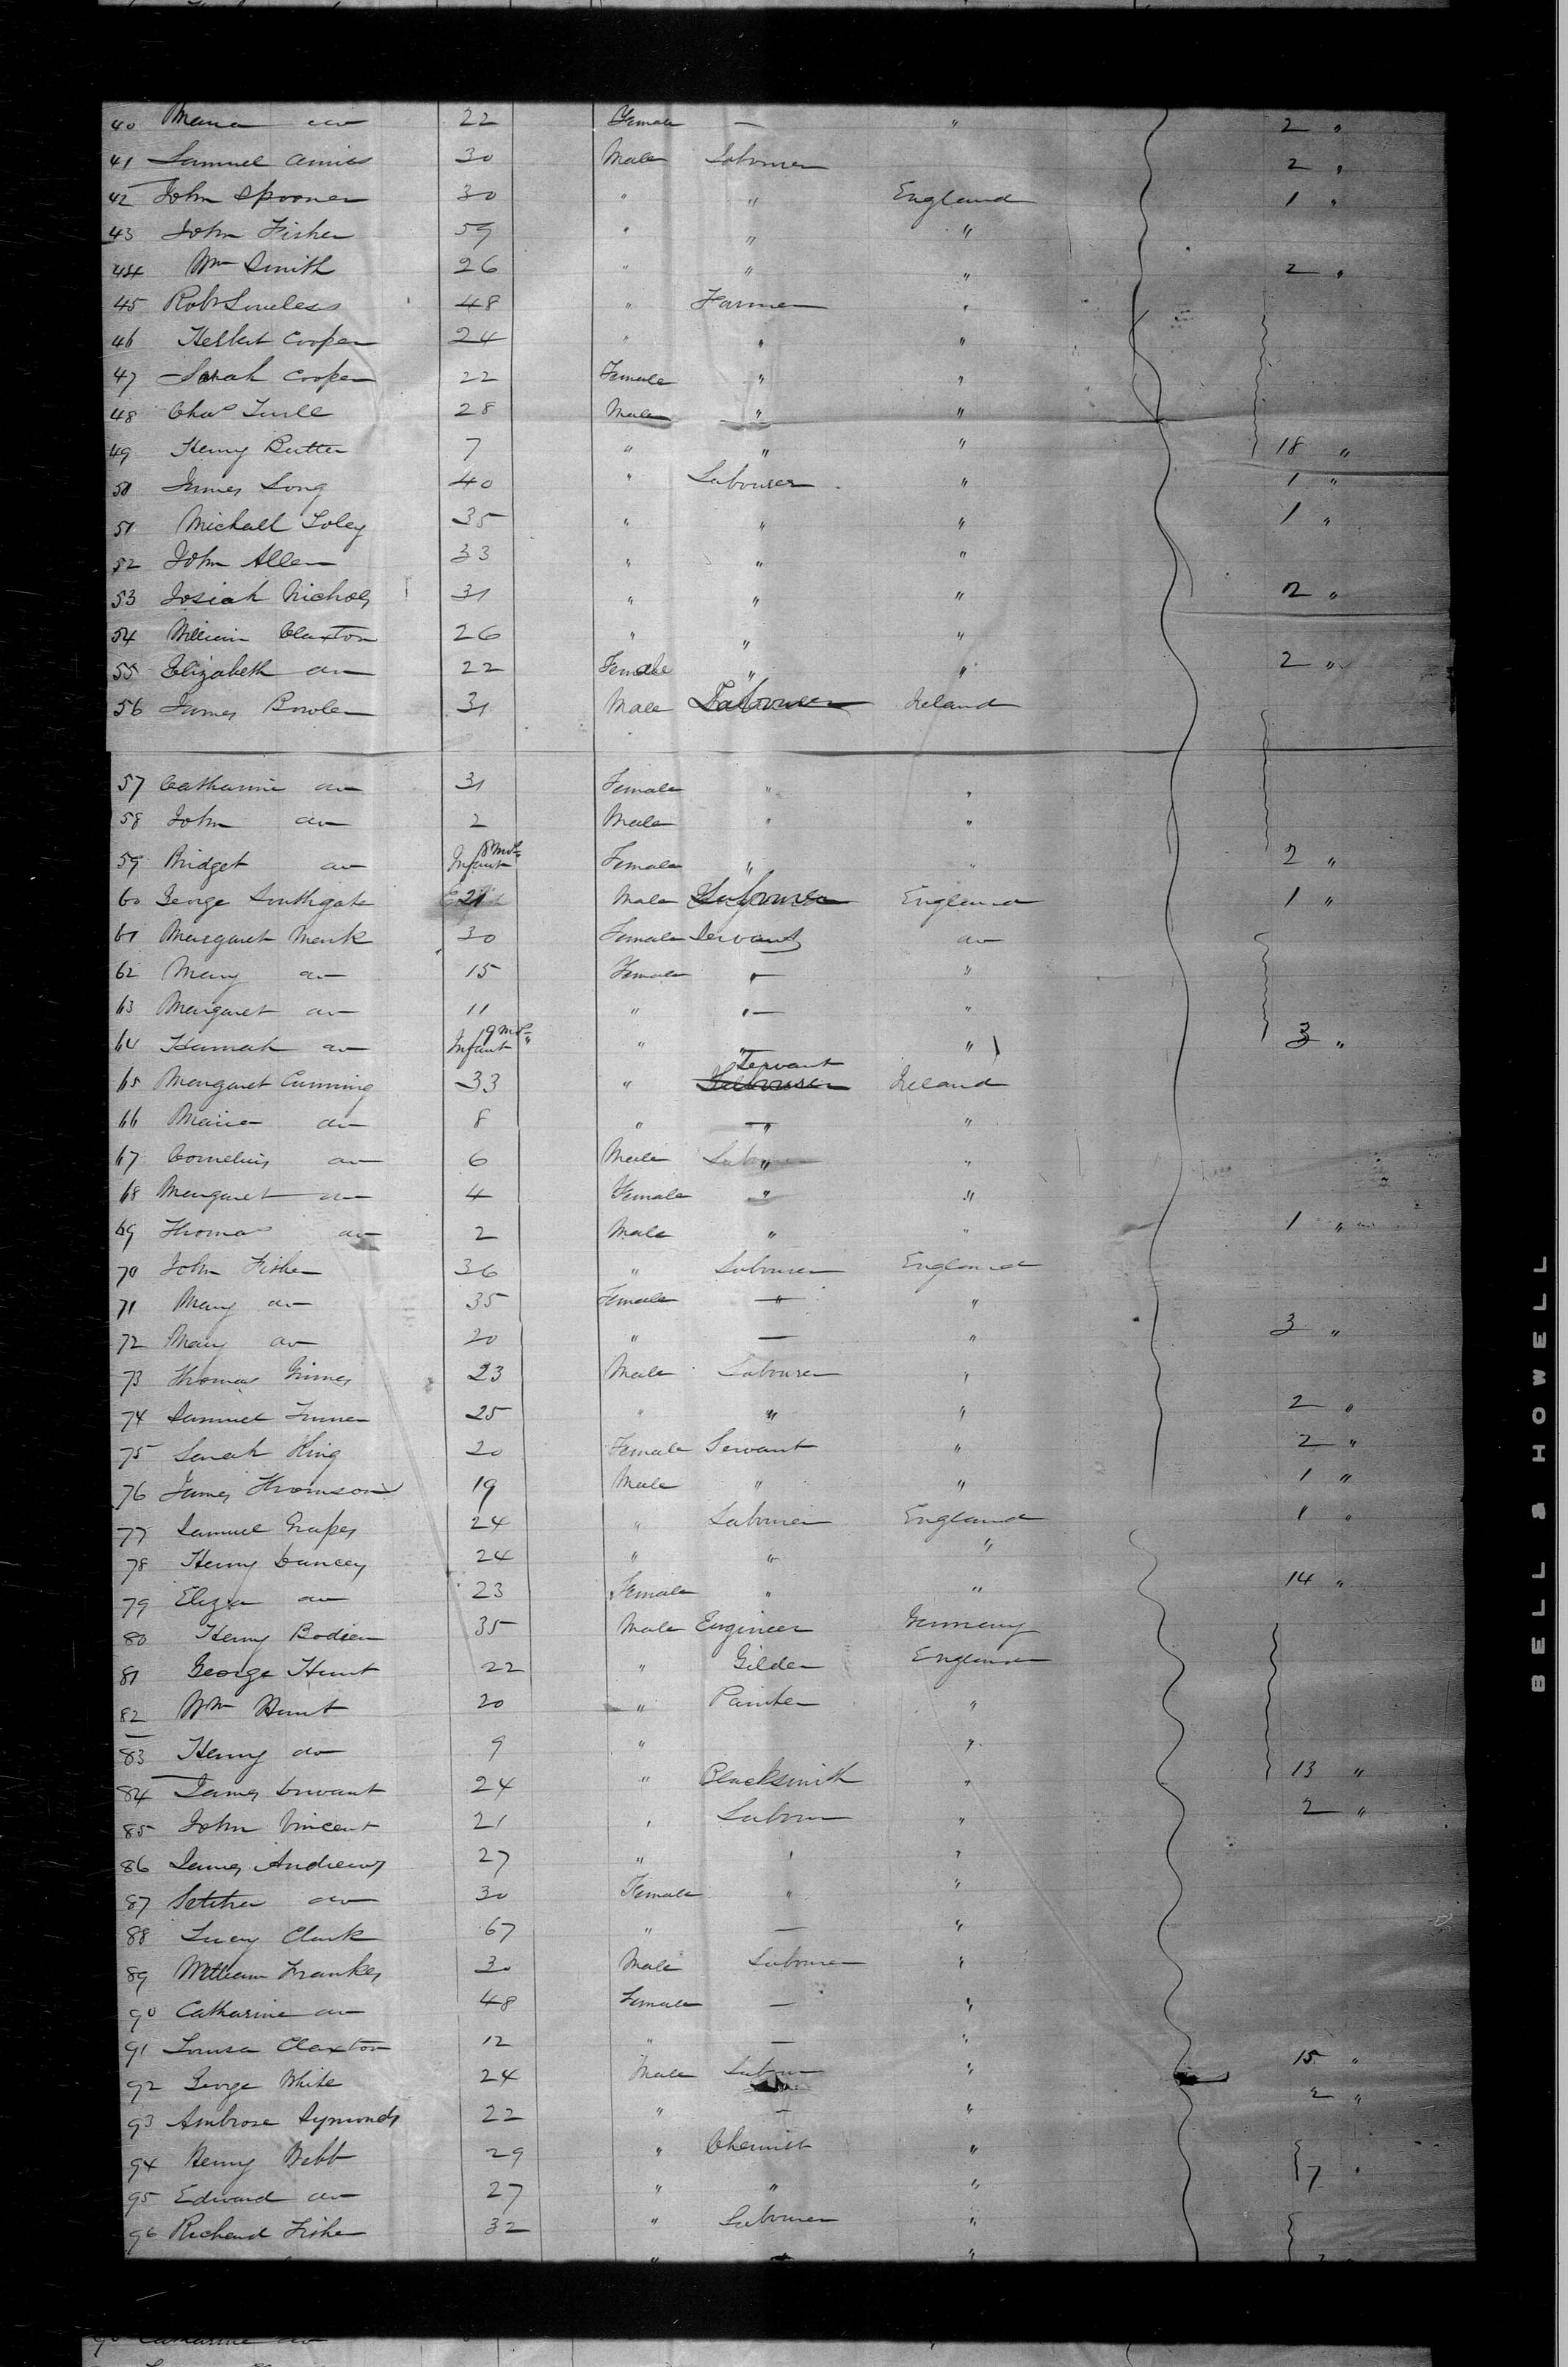 40 Maria do 22 Female — " 2 "
41 Samuel Amies 30 Male Labourer 2 "
42 John Spooner 30 " " England 1 "
43 John Fisher 59 " " "
44 Wm Smith 26 " " " 2 "
45 Robt Loveless 48 " Farmer "
46 Herbert Cooper 24 " " "
47 Sarah Cooper 22 Female " "
48 Chas 28 Male " "
49 Henry Butter 7 " " " 18 "
50 James Long 40 " Labourer " 1 "
51 Michall Foley 35 " " " 1 "
52 John Allen 33 " " "
53 Josiah Nichols 31 " " " 2 "
54 William Claxton 26 " " "
55 Elizabeth do 22 Female " " 2 "
56 James Bowler 31 Male Labourer Ireland
57 Catharine do 31 Female " "
58 John do 2 Male " "
59 Bridget do Infant 8 mos Female " " 2 "
60 George Southgate 21 Male Labourer England 1 "
61 Margaret Monk 30 Female Servant do
62 Mary do 15 Female " "
63 Margaret do 11 " " — "
64 Hannah do Infant 19 mos " " " 3 "
65 Margaret Cunning 33 " Labourer Servant Ireland
66 Maria do 8 " — "
67 Cornelius do 6 Male " "
68 Margaret do 4 Female " "
69 Thomas do 2 Male " " 1 "
70 John Fisher 36 " Labourer England
71 Mary do 35 Female — "
72 Mary do 20 " — " 3 "
73 Thomas Grimes 23 Male Labourer "
74 Samuel Turner 25 " " " 2 "
75 Sarah King 20 Female Servant " 2 "
76 James Thomson 19 Male " " 1 "
77 Samuel Grapes 24 " Labourer England 1 "
78 Henry Dancey 24 " " "
79 Eliza do 23 Female " " 14 "
80 Henry Bodien 35 Male Engineer Germany
81 George Hunt 22 " Gilder England
82 Wm Hunt 20 " Painter "
83 Henry do 9 " "
84 James Durrant 24 " Blacksmith " 13 "
85 John Vincent 21 " Labour " 2 "
86 James Andrews 27 " " "
87 do 30 Female " "
88 Lucy Clark 67 " — "
89 William Frankes 30 Male Labourer "
90 Catharine do 48 Female — "
91 Louisa Claxton 12 " — " 15 "
92 George White 24 Male Labour " 2 "
93 Ambrose Symonds 22 " — "
94 Henry Webb 29 " Chemist " 7 "
95 Edward do 27 " " "
96 Richard Fisher 32 " Labourer "
BELL & HOWELL